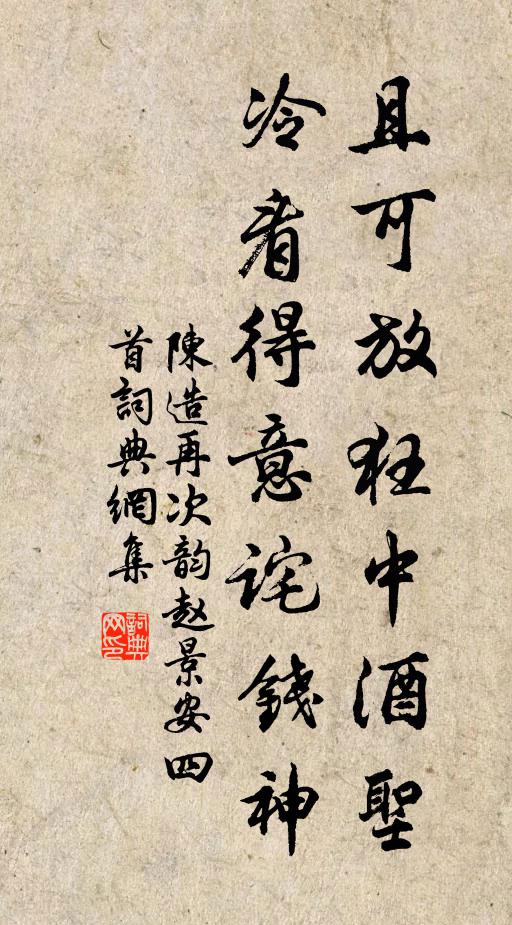 且可放狂中酒聖
冷看得意詫錢神
陳造再次韵赵景安四
首詞典網集
詞典
网印